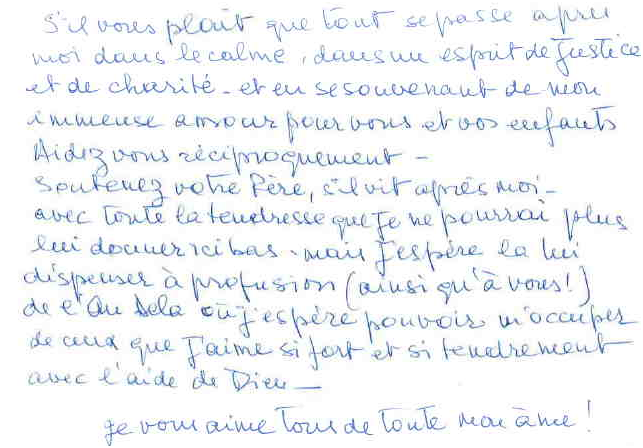 S'il vous plaît que tout se passe après
moi dans le calme, dans un esprit de Justice
et de charité - et en se souvenant de mon
immense amour pour vous et vos enfants
Aidez vous réciproquement -
Soutenez votre Père, s'il vit après moi -
avec toute la tendresse que Je ne pourrai plus
lui donner ici bas. mais J'espère la lui
dispenser à profusion (ainsi qu'à vous!)
de l'Au Delà où J'espère pouvoir m'occuper
de ceux que J'aime si fort et si tendrement
avec l'aide de Dieu -
Je vous aime tous de toute mon âme!